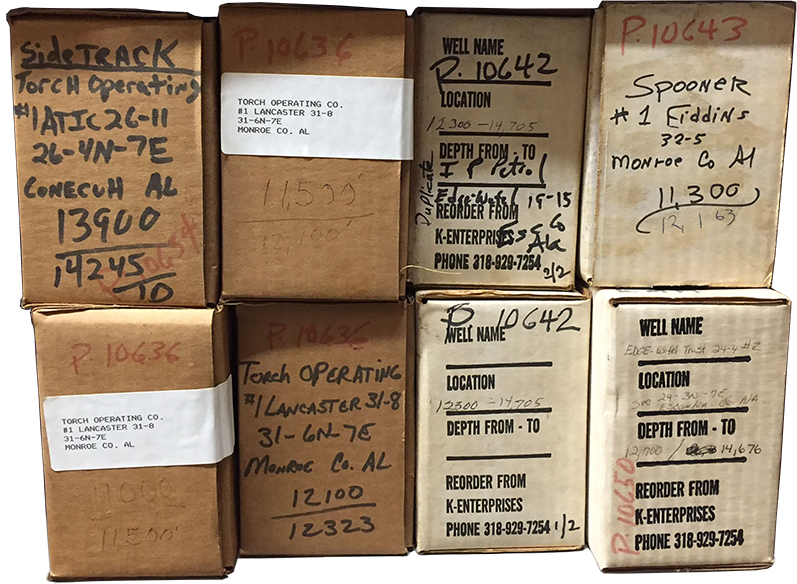 SideTRACK
Torch Operating
#1 ATIC 26-11
26-4N-7E
CONECUH AL
13900
14245
TD
P. 10636
TORCH OPERATING CO.
#1 LANCASTER 31-8
31-6N-7E
MONROE CO. AL
11,500'
WELL NAME
P. 10642
LOCATION
12300 - 14,705
DEPTH FROM - TO
I P Petrol
Duplicate
19-15
REORDER FROM
Esc Co
K-ENTERPRISES
AL
PHONE 318-929-7254
2/2
P. 10643
SPOONER
#1 Eiddins
32-5
Monroe Co Al
11,300
12,163
P. 10636
TORCH OPERATING CO.
#1 LANCASTER 31-8
31-6N-7E
MONROE CO. AL
11,500'
P. 10636
Torch OPERATING
#1 LANCASTER 31-8
31-6N-7E
MONROE Co. AL
12100
12323
P. 10642
WELL NAME
LOCATION
12300 - 14,705
DEPTH FROM - TO
REORDER FROM
K-ENTERPRISES
PHONE 318-929-7254 1/2
WELL NAME
Trust 24-4 #2
LOCATION
Sec 24-3N-7E
DEPTH FROM - TO
12,700 / 14,676
REORDER FROM
K-ENTERPRISES
PHONE 318-929-7254
P. 10650